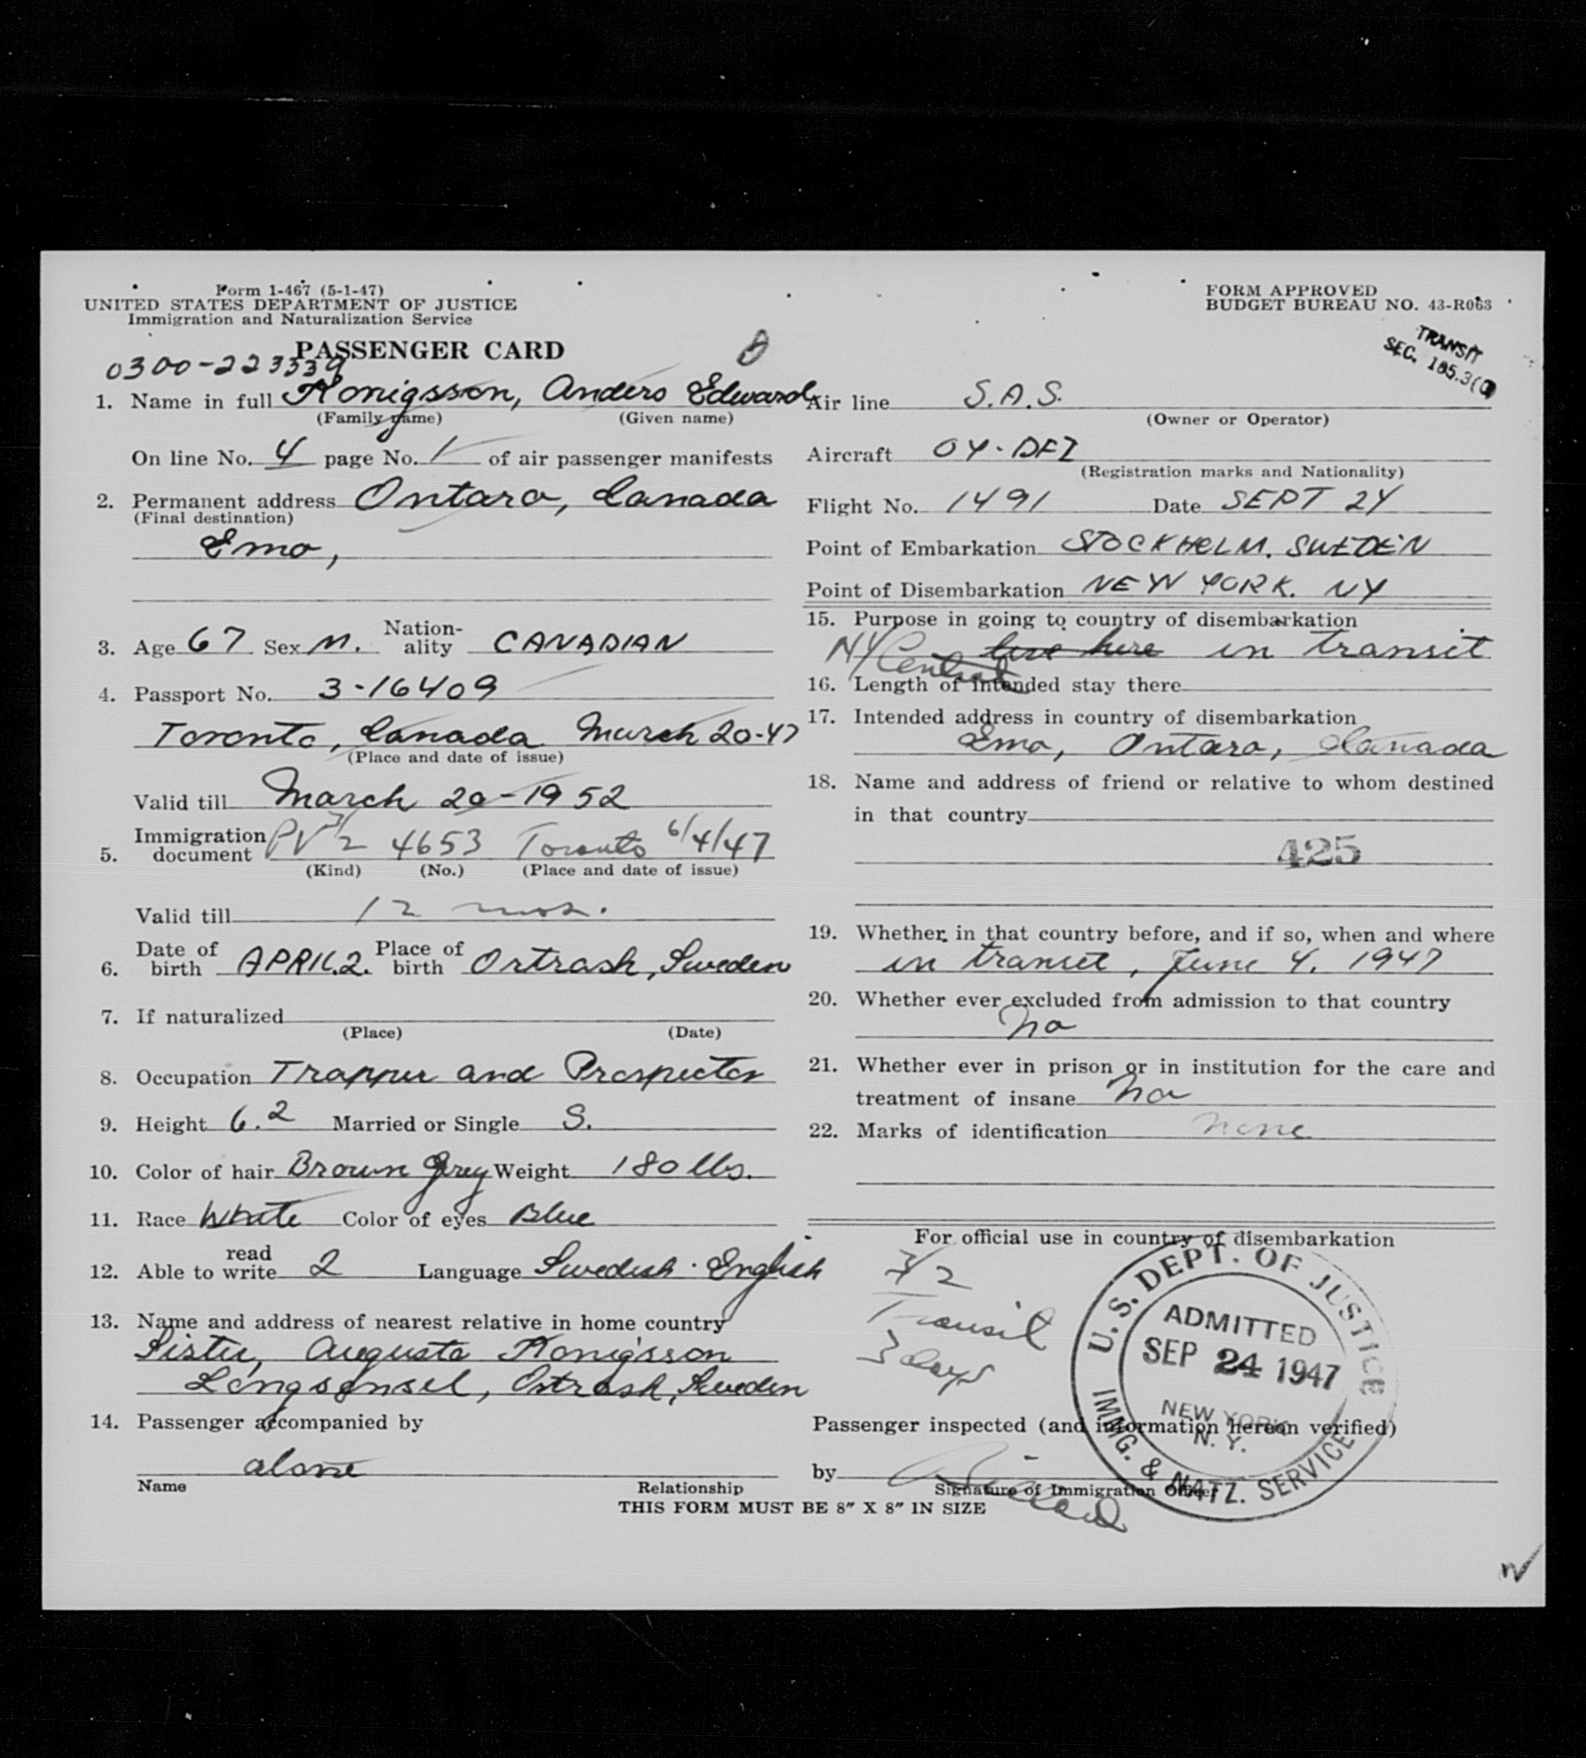 Form 1-467 (5-1-47)
UNITED STATES DEPARTMENT OF JUSTICE
Immigration and Naturalization Service
FORM APPROVED
BUDGET BUREAU NO. 43-R063
TRANSIT
SEC. 185.3(
PASSENGER CARD
0300-223339
1. Name in full Konigsson, Anders Edward
(Family name) (Given name)
On line No. 4 page No. 1 of air passenger manifests
2. Permanent address Ontaro, Canada
(Final destination)
Emo,
3. Age 67 Sex M. Nation-ality CANADIAN
4. Passport No. 3-16409
Toronto, Canada March 20-47
(Place and date of issue)
Valid till March 20-1952
5. Immigration document PV 3/2 4653 Toronto 6/4/47
(Kind) (No.) (Place and date of issue)
Valid till 12 mos.
6. Date of birth APRIL.2. Place of birth Ortrask, Sweden
7. If naturalized
(Place) (Date)
8. Occupation Trapper and Prospector
9. Height 6.2 Married or Single S.
10. Color of hair Brown Grey Weight 180 lbs.
11. Race White Color of eyes Blue
12. Able to read write 2 Language Swedish. English
13. Name and address of nearest relative in home country
Sister, Augusta Konigsson
Ortrask, Sweden
14. Passenger accompanied by
alone
Name Relationship
THIS FORM MUST BE 8″ X 8″ IN SIZE
Air line S.A.S.
(Owner or Operator)
Aircraft OY-DFI
(Registration marks and Nationality)
Flight No. 1491 Date SEPT 24
Point of Embarkation STOCKHOLM. SWEDEN
Point of Disembarkation NEW YORK. NY
15. Purpose in going to country of disembarkation
NY Central live here in transit
16. Length of intended stay there
17. Intended address in country of disembarkation
Emo, Ontaro, Canada
18. Name and address of friend or relative to whom destined
in that country
425
19. Whether in that country before, and if so, when and where
in transit, June 4. 1947
20. Whether ever excluded from admission to that country
No
21. Whether ever in prison or in institution for the care and
treatment of insane No
22. Marks of identification none
For official use in country of disembarkation
3/2
Transit
3 days
U.S. DEPT. OF JUSTICE
ADMITTED
SEP 24 1947
NEW YORK
N. Y.
IMMG. & NATZ. SERVICE
Passenger inspected (and information hereon verified)
by
Signature of Immigration Officer